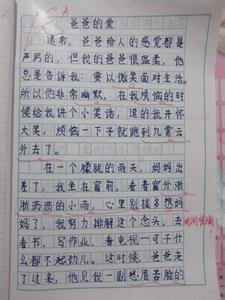 爸爸的爱
通常，爸爸给人的感觉都是
严厉的，但我的爸爸很温柔，他
总是告诉我：要以微笑面对生活。
所以他非常幽默，在我烦恼的时
候给我讲个小笑话，让我开怀
大笑，烦恼一下子就跑到九霄云
外去了。
在一个朦胧的雨天，妈妈出
差了，我坐在窗前，看着窗外淅
淅沥沥的小雨，心里别提多想妈
妈了，我努力排解这个念头，去
看书、写作业、看电视……可干什
么都不起劲儿。这时候，爸爸走
了过来，他见我一副愁眉苦脸的